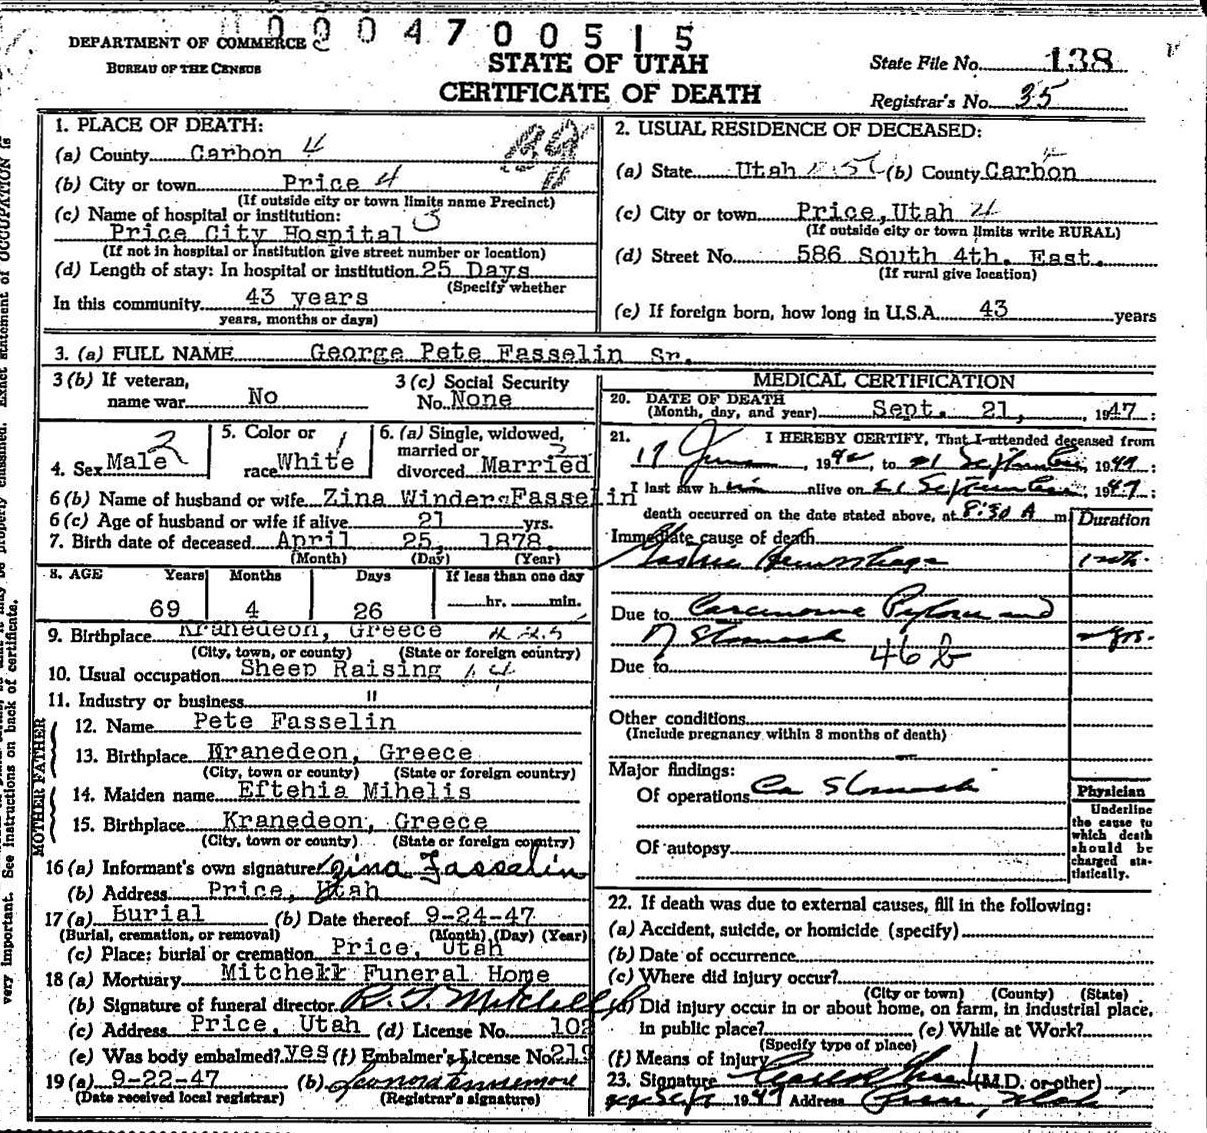 0004700515
DEPARTMENT OF COMMERCE
BUREAU OF THE CENSUS
STATE OF UTAH
CERTIFICATE OF DEATH
State File No. 138
Registrar's No. 35
very important. See instructions on back of certificate.
MOTHER FATHER
1. PLACE OF DEATH:
(a) County Carbon 4
(b) City or town Price 4
(If outside city or town limits name Precinct)
(c) Name of hospital or institution: 3
Price City Hospital
(If not in hospital or institution give street number or location)
(d) Length of stay: In hospital or institution 25 Days
(Specify whether
In this community 43 years
years, months or days)
2. USUAL RESIDENCE OF DECEASED:
(a) State Utah (b) County Carbon
(c) City or town Price, Utah 4
(If outside city or town limits write RURAL)
(d) Street No. 586 South 4th. East.
(If rural give location)
(e) If foreign born, how long in U.S.A. 43 years
3. (a) FULL NAME George Pete Fasselin Sr.
3 (b) If veteran, name war No
3 (c) Social Security No. None
4. Sex Male 2
5. Color or race White 1
6. (a) Single, widowed, married or divorced Married
6 (b) Name of husband or wife Zina Winders Fasselin
6 (c) Age of husband or wife if alive 21 yrs.
7. Birth date of deceased April 25, 1878
(Month) (Day) (Year)
8. AGE Years Months Days If less than one day
69 4 26 hr. min.
9. Birthplace Kranedeon, Greece
(City, town, or county) (State or foreign country)
10. Usual occupation Sheep Raising
11. Industry or business "
12. Name Pete Fasselin
13. Birthplace Kranedeon, Greece
(City, town or county) (State or foreign country)
14. Maiden name Eftehia Mihelis
15. Birthplace Kranedeon, Greece
(City, town or county) (State or foreign country)
16 (a) Informant's own signature Zina Fasselin
(b) Address Price, Utah
17 (a) Burial (b) Date thereof 9-24-47
(Burial, cremation, or removal) (Month) (Day) (Year)
(c) Place: burial or cremation Price, Utah
18 (a) Mortuary Mitchell Funeral Home
(b) Signature of funeral director
(c) Address Price, Utah (d) License No. 102
(e) Was body embalmed? yes (f) Embalmer's License No. 219
19 (a) 9-22-47 (b)
(Date received local registrar) (Registrar's signature)
MEDICAL CERTIFICATION
20. DATE OF DEATH
(Month, day, and year) Sept. 21, 1947
21. I HEREBY CERTIFY, That I attended deceased from
17 June, 19 to 21 September, 1947
I last saw him alive on 21 September, 1947
death occurred on the date stated above, at 8:30 A m
Duration
Immediate cause of death
Hemorrhage
Due to Carcinoma Pylorus and
Stomach
46 b
Due to
Other conditions
(Include pregnancy within 3 months of death)
Major findings:
Of operations Ca Stomach
Of autopsy
Physician
Underline the cause to which death should be charged statistically.
22. If death was due to external causes, fill in the following:
(a) Accident, suicide, or homicide (specify)
(b) Date of occurrence
(c) Where did injury occur?
(City or town) (County) (State)
(d) Did injury occur in or about home, on farm, in industrial place,
in public place? (e) While at Work?
(Specify type of place)
(f) Means of injury
23. Signature (M.D. or other)
1947 Address Price, Utah